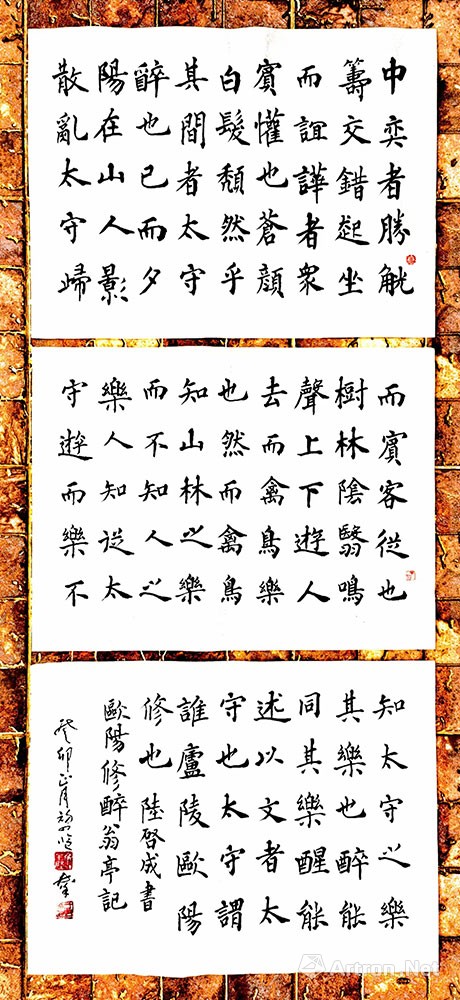 中弈者勝觥
籌交錯起坐
而諠譁者衆
賓懽也蒼顔
白髮頹然乎
其間者太守
醉也已而夕
陽在山人影
散亂太守歸
而賓客從也
樹林陰翳鳴
聲上下遊人
去而禽鳥樂
也然而禽鳥
知山林之樂
而不知人之
樂人知從太
守遊而樂不
知太守之樂
其樂也醉能
同其樂醒能
述以文者太
守也太守謂
誰廬陵歐陽
修也 陸啓成書
歐陽修醉翁亭記
癸卯正月
Artron.Net